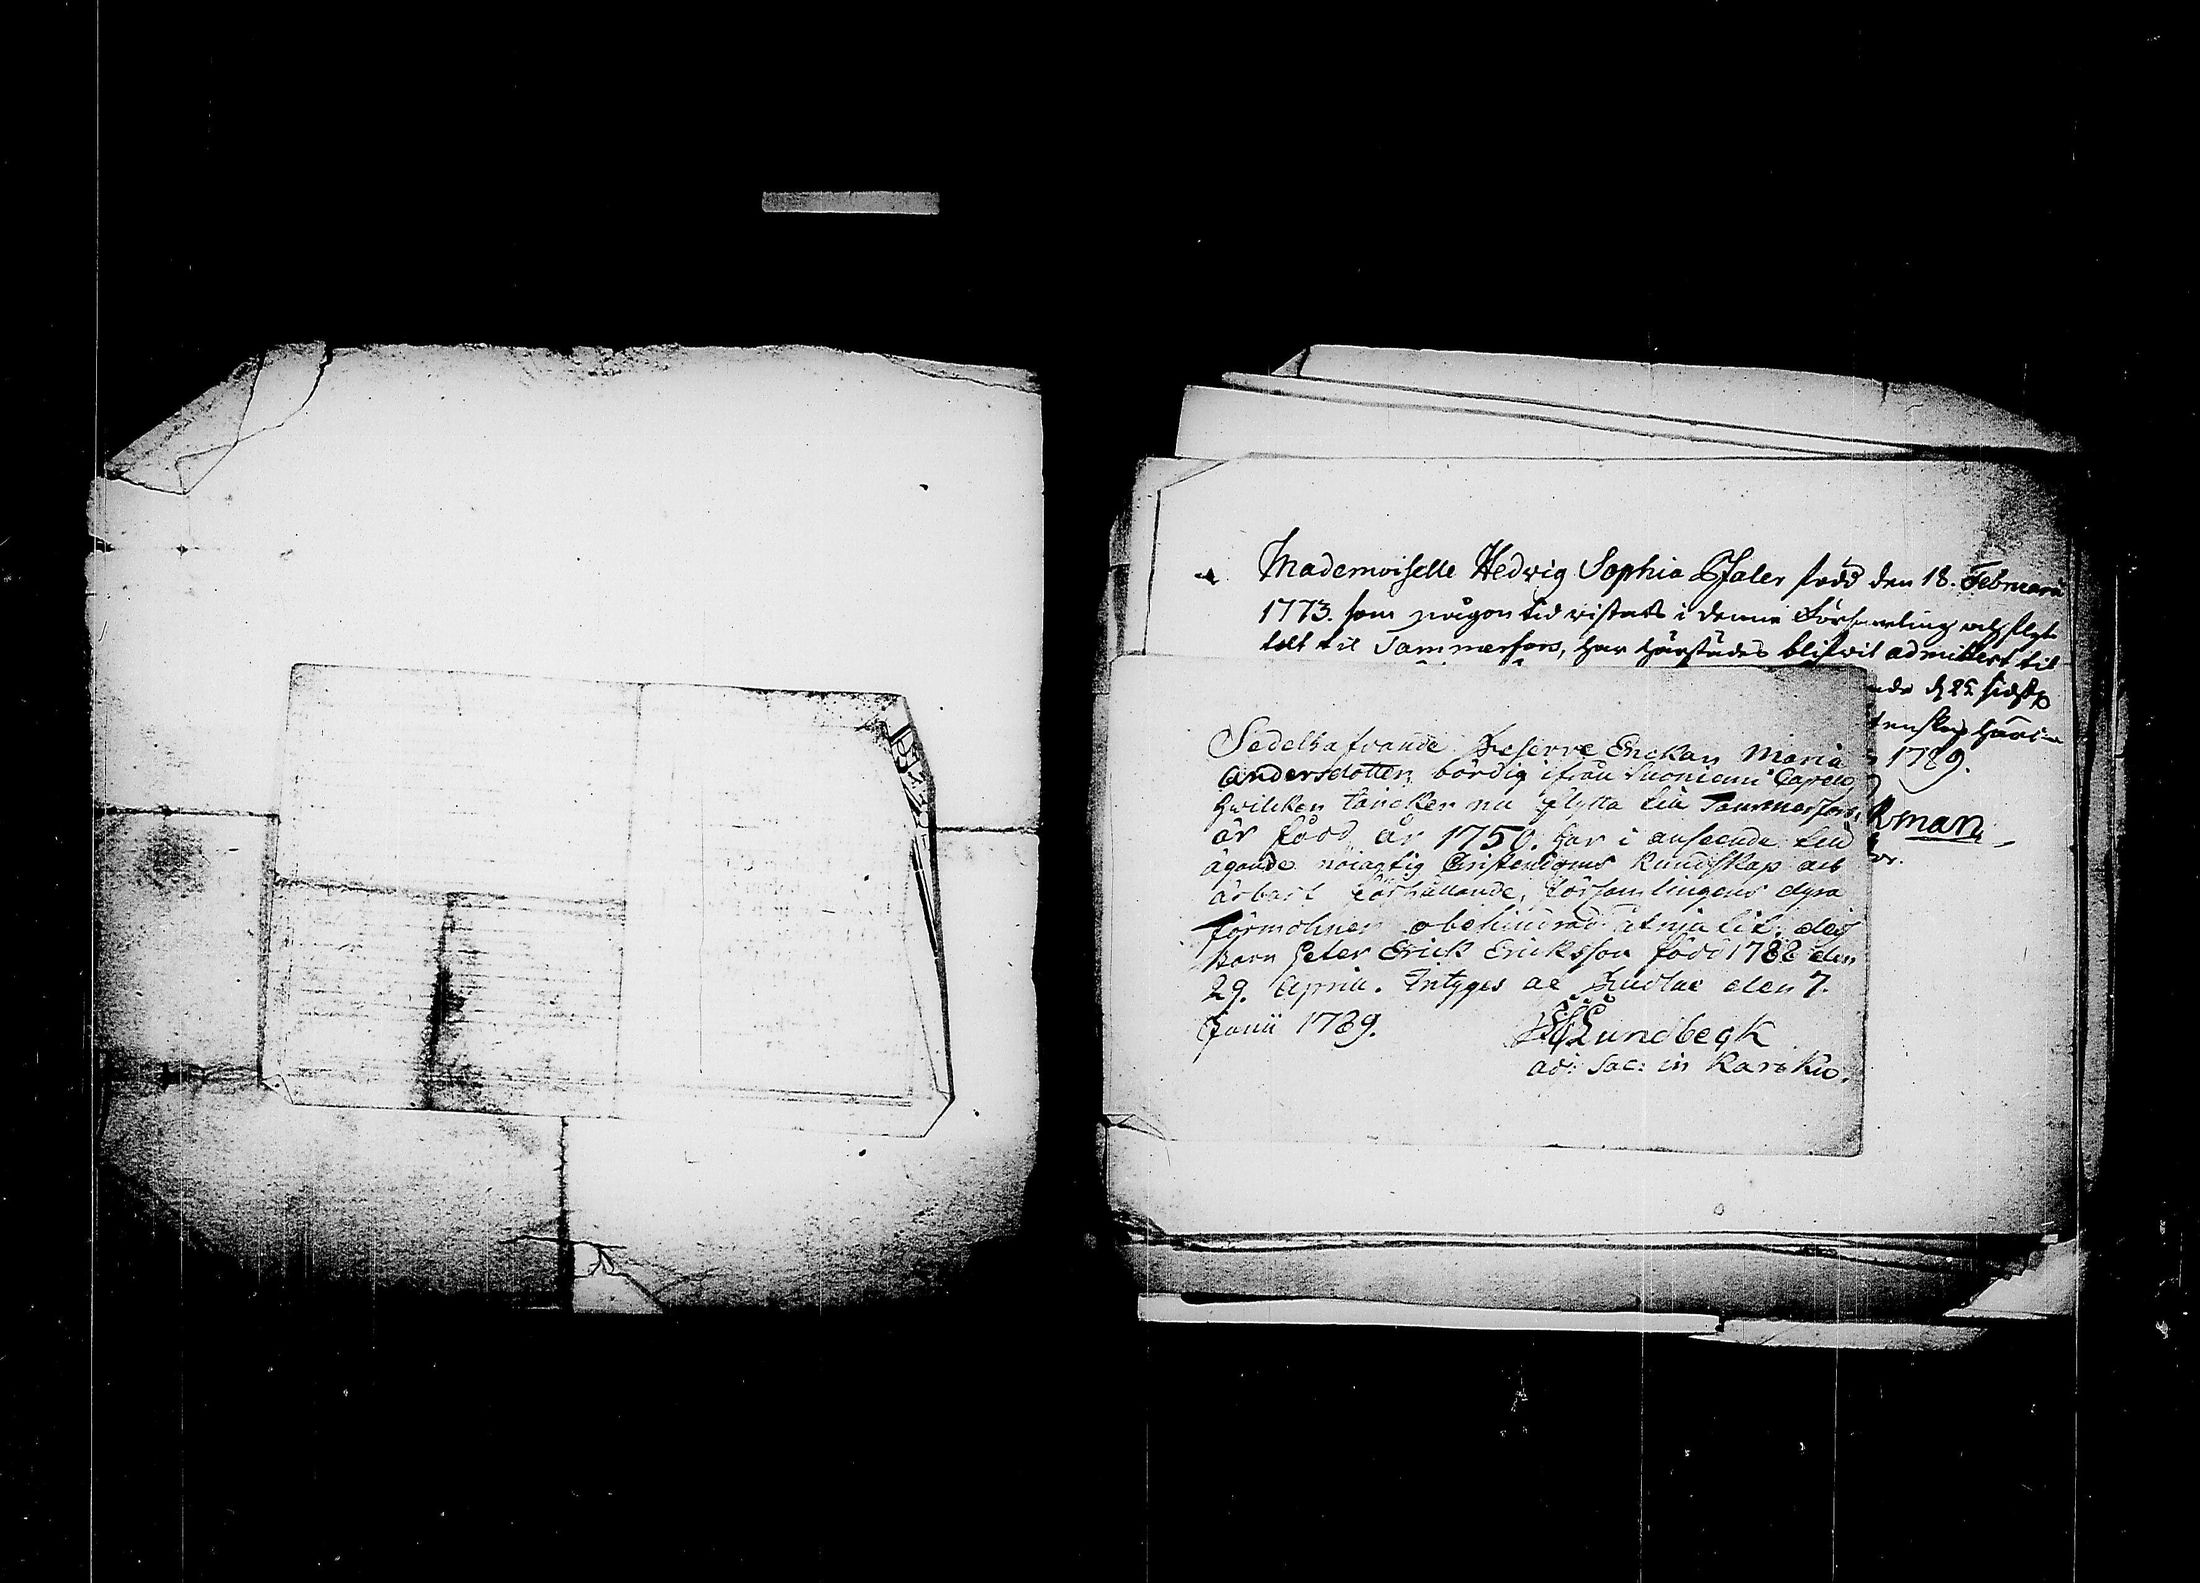 Mademoiselle Hedwig Sophia Pfaler född den 18. Februarii
1773. som någon tid vistats i denne Församling och flyt
tat til Tammerfors, har härstädes blifwit admittert til
d 25 sidstl
1789.
kman
Sedelhafvande Reserve Enckan Maria
Andersdotter, bördig ifrån Suoniemi Capell,
hwilcken täncker nu flytta till Tammerfors,
är född år 1750. har i anseende till
ägande nöiagtig Christendoms Kundskap och
ärbart förhållande, församlingens dyra
förmohner obehindrad åtniutit. des
Barn Peter Erick Ericksson född 1788 den
29. April. Intyges af den 7.
Junii 1789.
Lundbegk
adj: Sac: in Karcku.